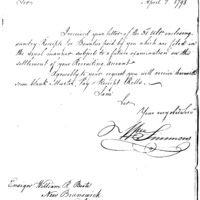 Sir April 7. 1798
I received your letter of the 31 Ulto. enclosing
sundry Receipts for Bounties paid by you which are filed in
the usual manner subject to a future examination on the
settlement of your Recruiting Account.
Agreeably to your request you will receive herewith
some blank Muster, Pay & Receipt Rolls.
I am
Sir
Your very obt. Servt.
Wm Simmons
Ensign William P. Beste
New Brunswick